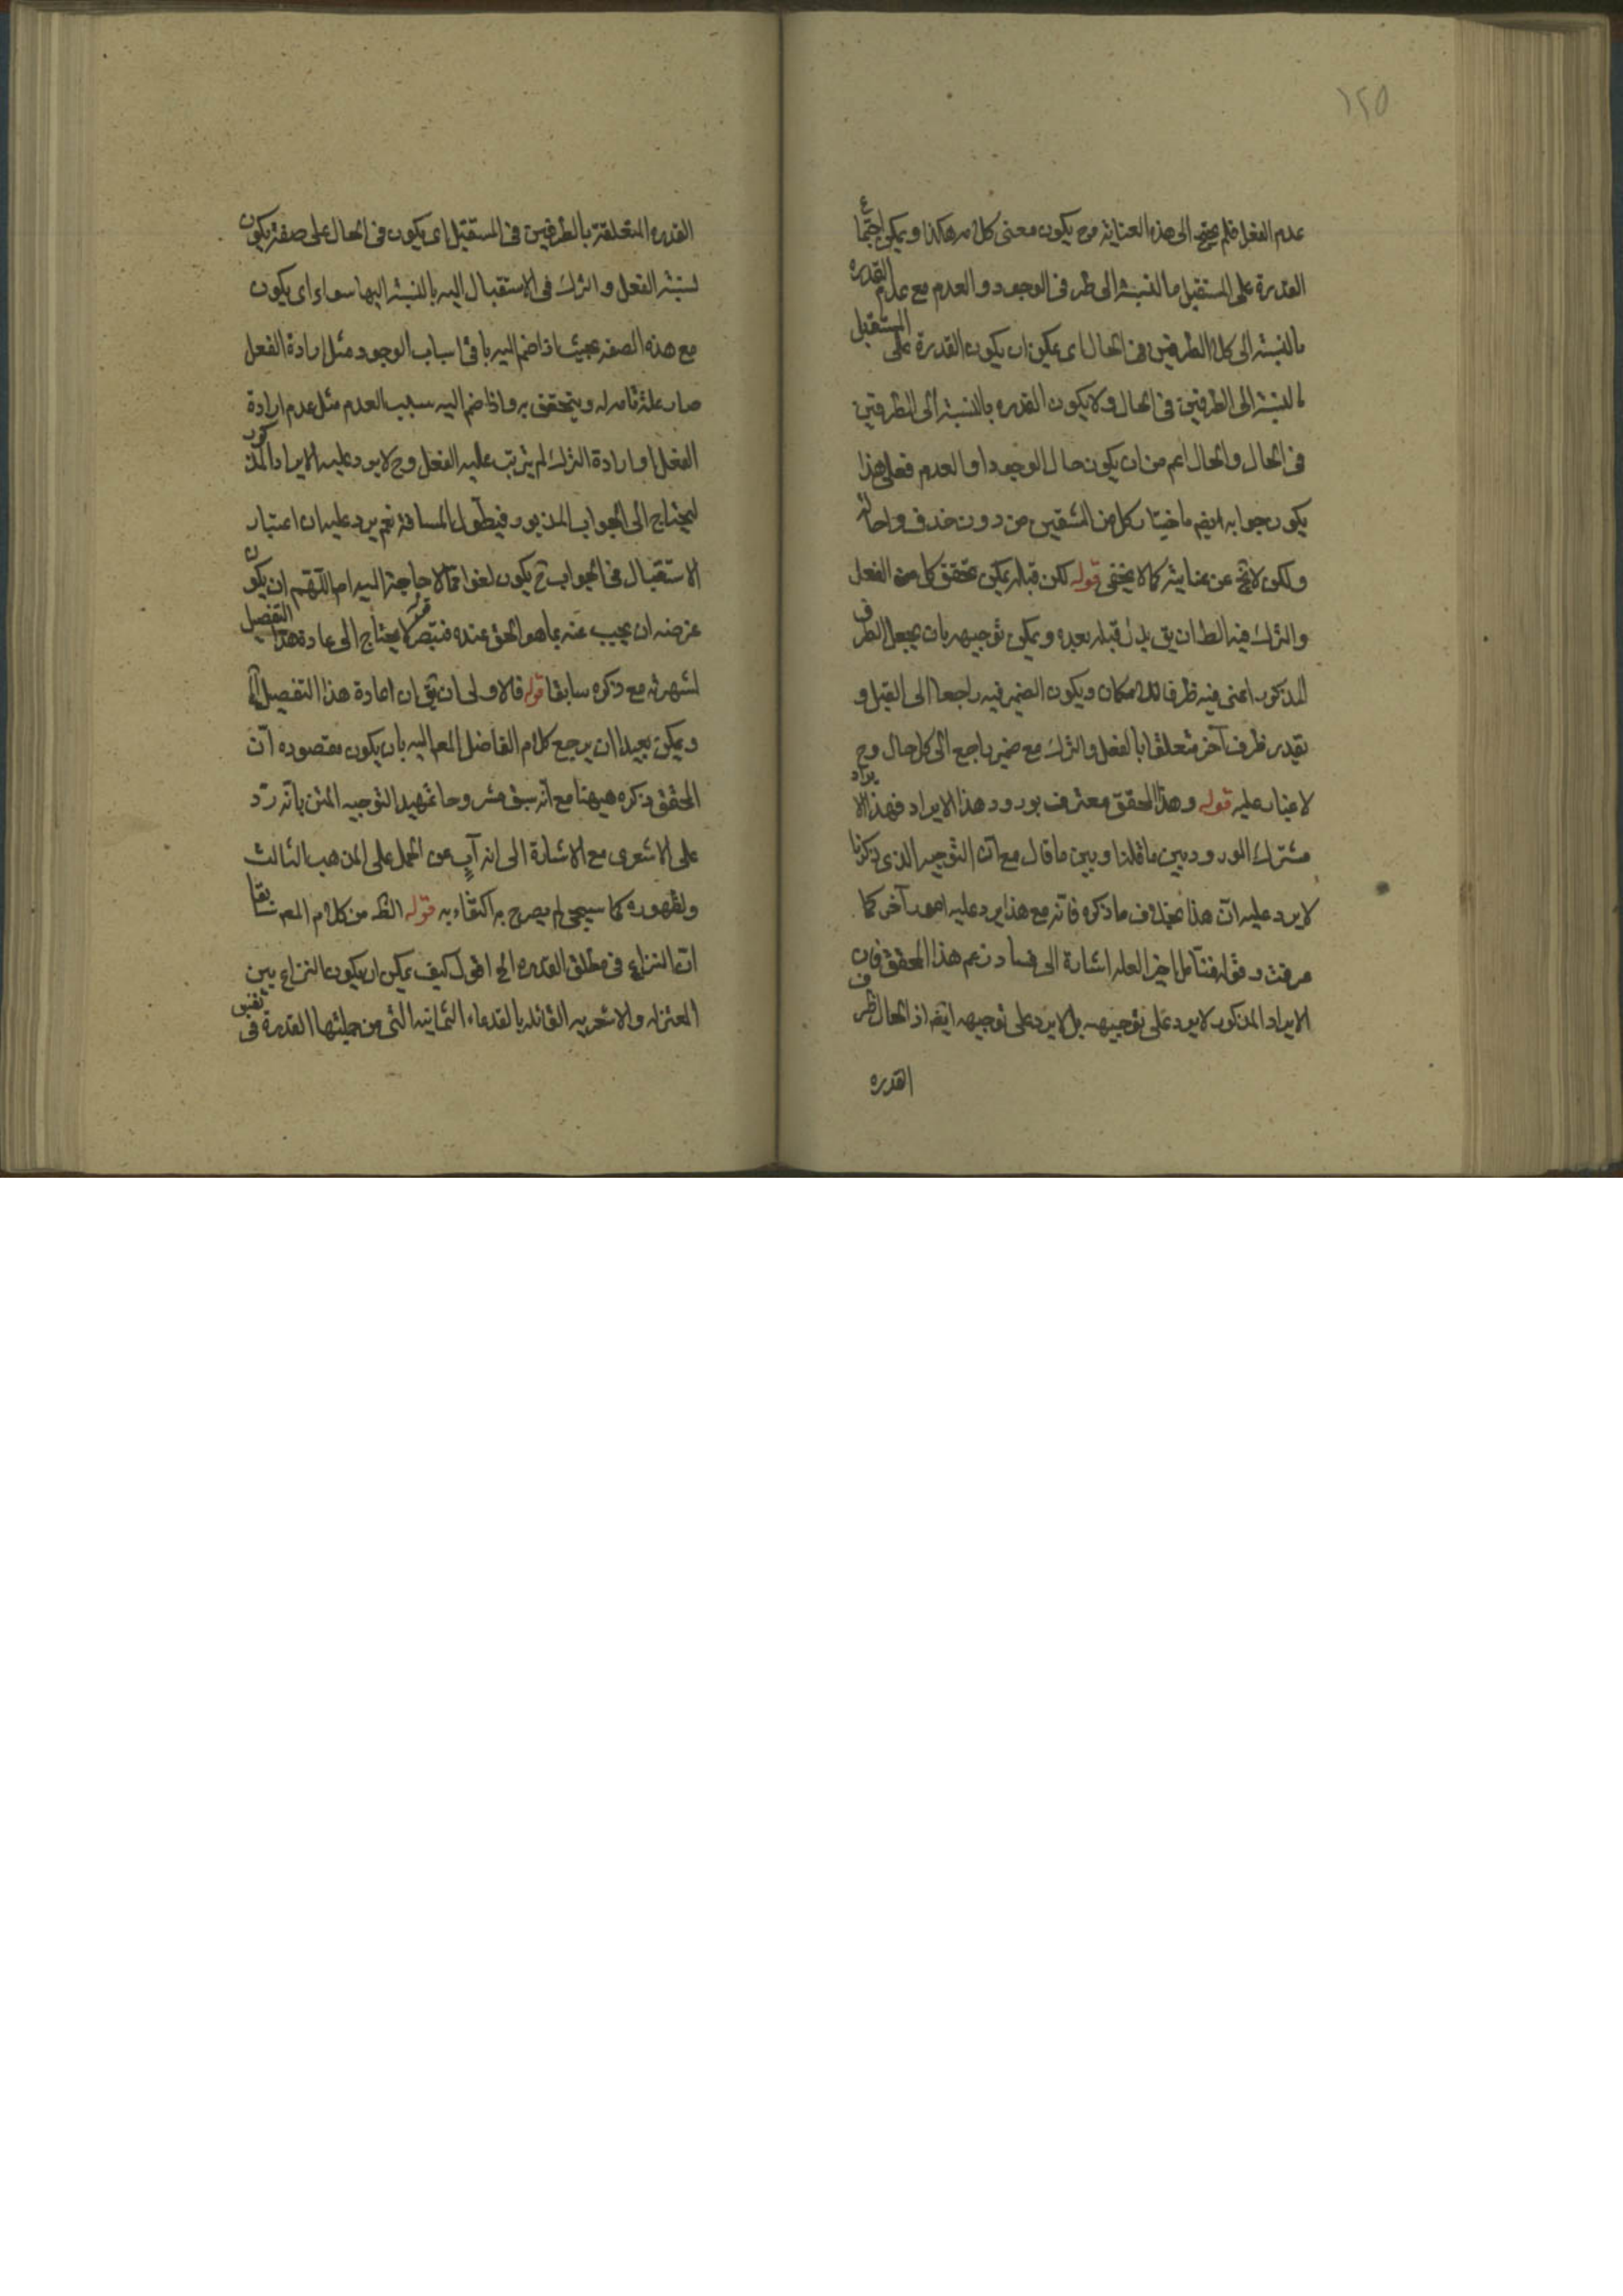 ١٢٥
عدم الفعل فلم يحتج الى هذه العناية وح يكون معنى كلامه هكذا ويمكن اجتماع
القدرة على المستقبل بالنسبة الى طرفى الوجود والعدم مع عدم القدرة
بالنسبة الى كلا الطرفين فى الحال اى يمكن ان يكون القدرة على المستقبل
بالنسبة الى الطرفين فى الحال ولا يكون القدره بالنسبة الى الطرفين
فى الحال والحال اعم من ان يكون حال الوجود او العدم فعلى هذا
يكون جوابه ايضم باختيار كل من الشقين من دون حذف واحالة
ولكن لا يخ عن عناية كما لا يخفى قوله لكن قبله يمكن تحقق كل من الفعل
والترك فيه الظ ان يق بدل قبله بعده ويمكن توجيهه بان يجعل الظرف
المذكور اعنى فيه ظرفا للامكان ويكون الضمير فيه راجعا الى القبل و
يقدر ظرف آخر متعلقا بالفعل والترك مع ضمير راجع الى كل حال وح
لا غبار عليه قوله وهذا المحقق معترف بورود هذا الايراد فهذا الايراد
مشترك الورود بين ما قلنا وبين ما قال مع ان التوجيه الذى ذكرنا
لا يرد عليه ان هذا بخلاف ما ذكره فانه مع هذا يرد عليه امور آخر كما
عرفت وقوله فتأمل اخر العله اشارة الى فساد زعم هذا المحقق فان
الايراد المذكور لا يرد على توجيهه بل لا يرد على توجيهه ايضم اذ الحال ظرف
القدره
القدره المتعلقة بالطرفين فى المستقبل اى يكون فى الحال على صفة يكون
نسبة الفعل والترك فى الاستقبال اليه بالنسبة اليها سواء اى يكون
مع هذه الصفه بحيث اذا ضم اليه باقى اسباب الوجود مثل ارادة الفعل
صار علة تامه له ويتحقق به واذا ضم اليه سبب العدم مثل عدم ارادة
الفعل او ارادة الترك لم يترتب عليه الفعل وح لا يرد عليه الايراد المذكور
ليحتاج الى الجواب المذبور فيطول المسافة نعم يرد عليه ان اعتبار
الاستقبال فى الجواب ح يكون لغوا مما لا حاجة اليه اما اللهم ان يكون
غرضه ان يجيب عنه بما هو الحق عنده فتبصر قوله لا يحتاج الى اعادة هذا التفصيل
لشهرته مع ذكره سابقا قوله فالاولى ان يق ان اعادة هذا التفصيل
ويمكن بعيدا ان يرجع كلام الفاضل المعم اليه بان يكون مقصوده ان
المحقق ذكره هيهنا مع انه سبق مشروحا تمهيد التوجيه المتن بانه رد
على الاشعرى مع الاشارة الى انه آبٍ عن الحمل على المذهب الثالث
ولظهوره كما سيجئ لم يصرح به اكتفاء به قوله الظ من كلام المعم سابقا
ان النزاع فى مطلق القدره الخ اقول كيف يمكن ان يكون النزاع بين
المعتزله والاشعريه القائله بالقدماء الثمانيه التى من جملتها القدرة فى نفس